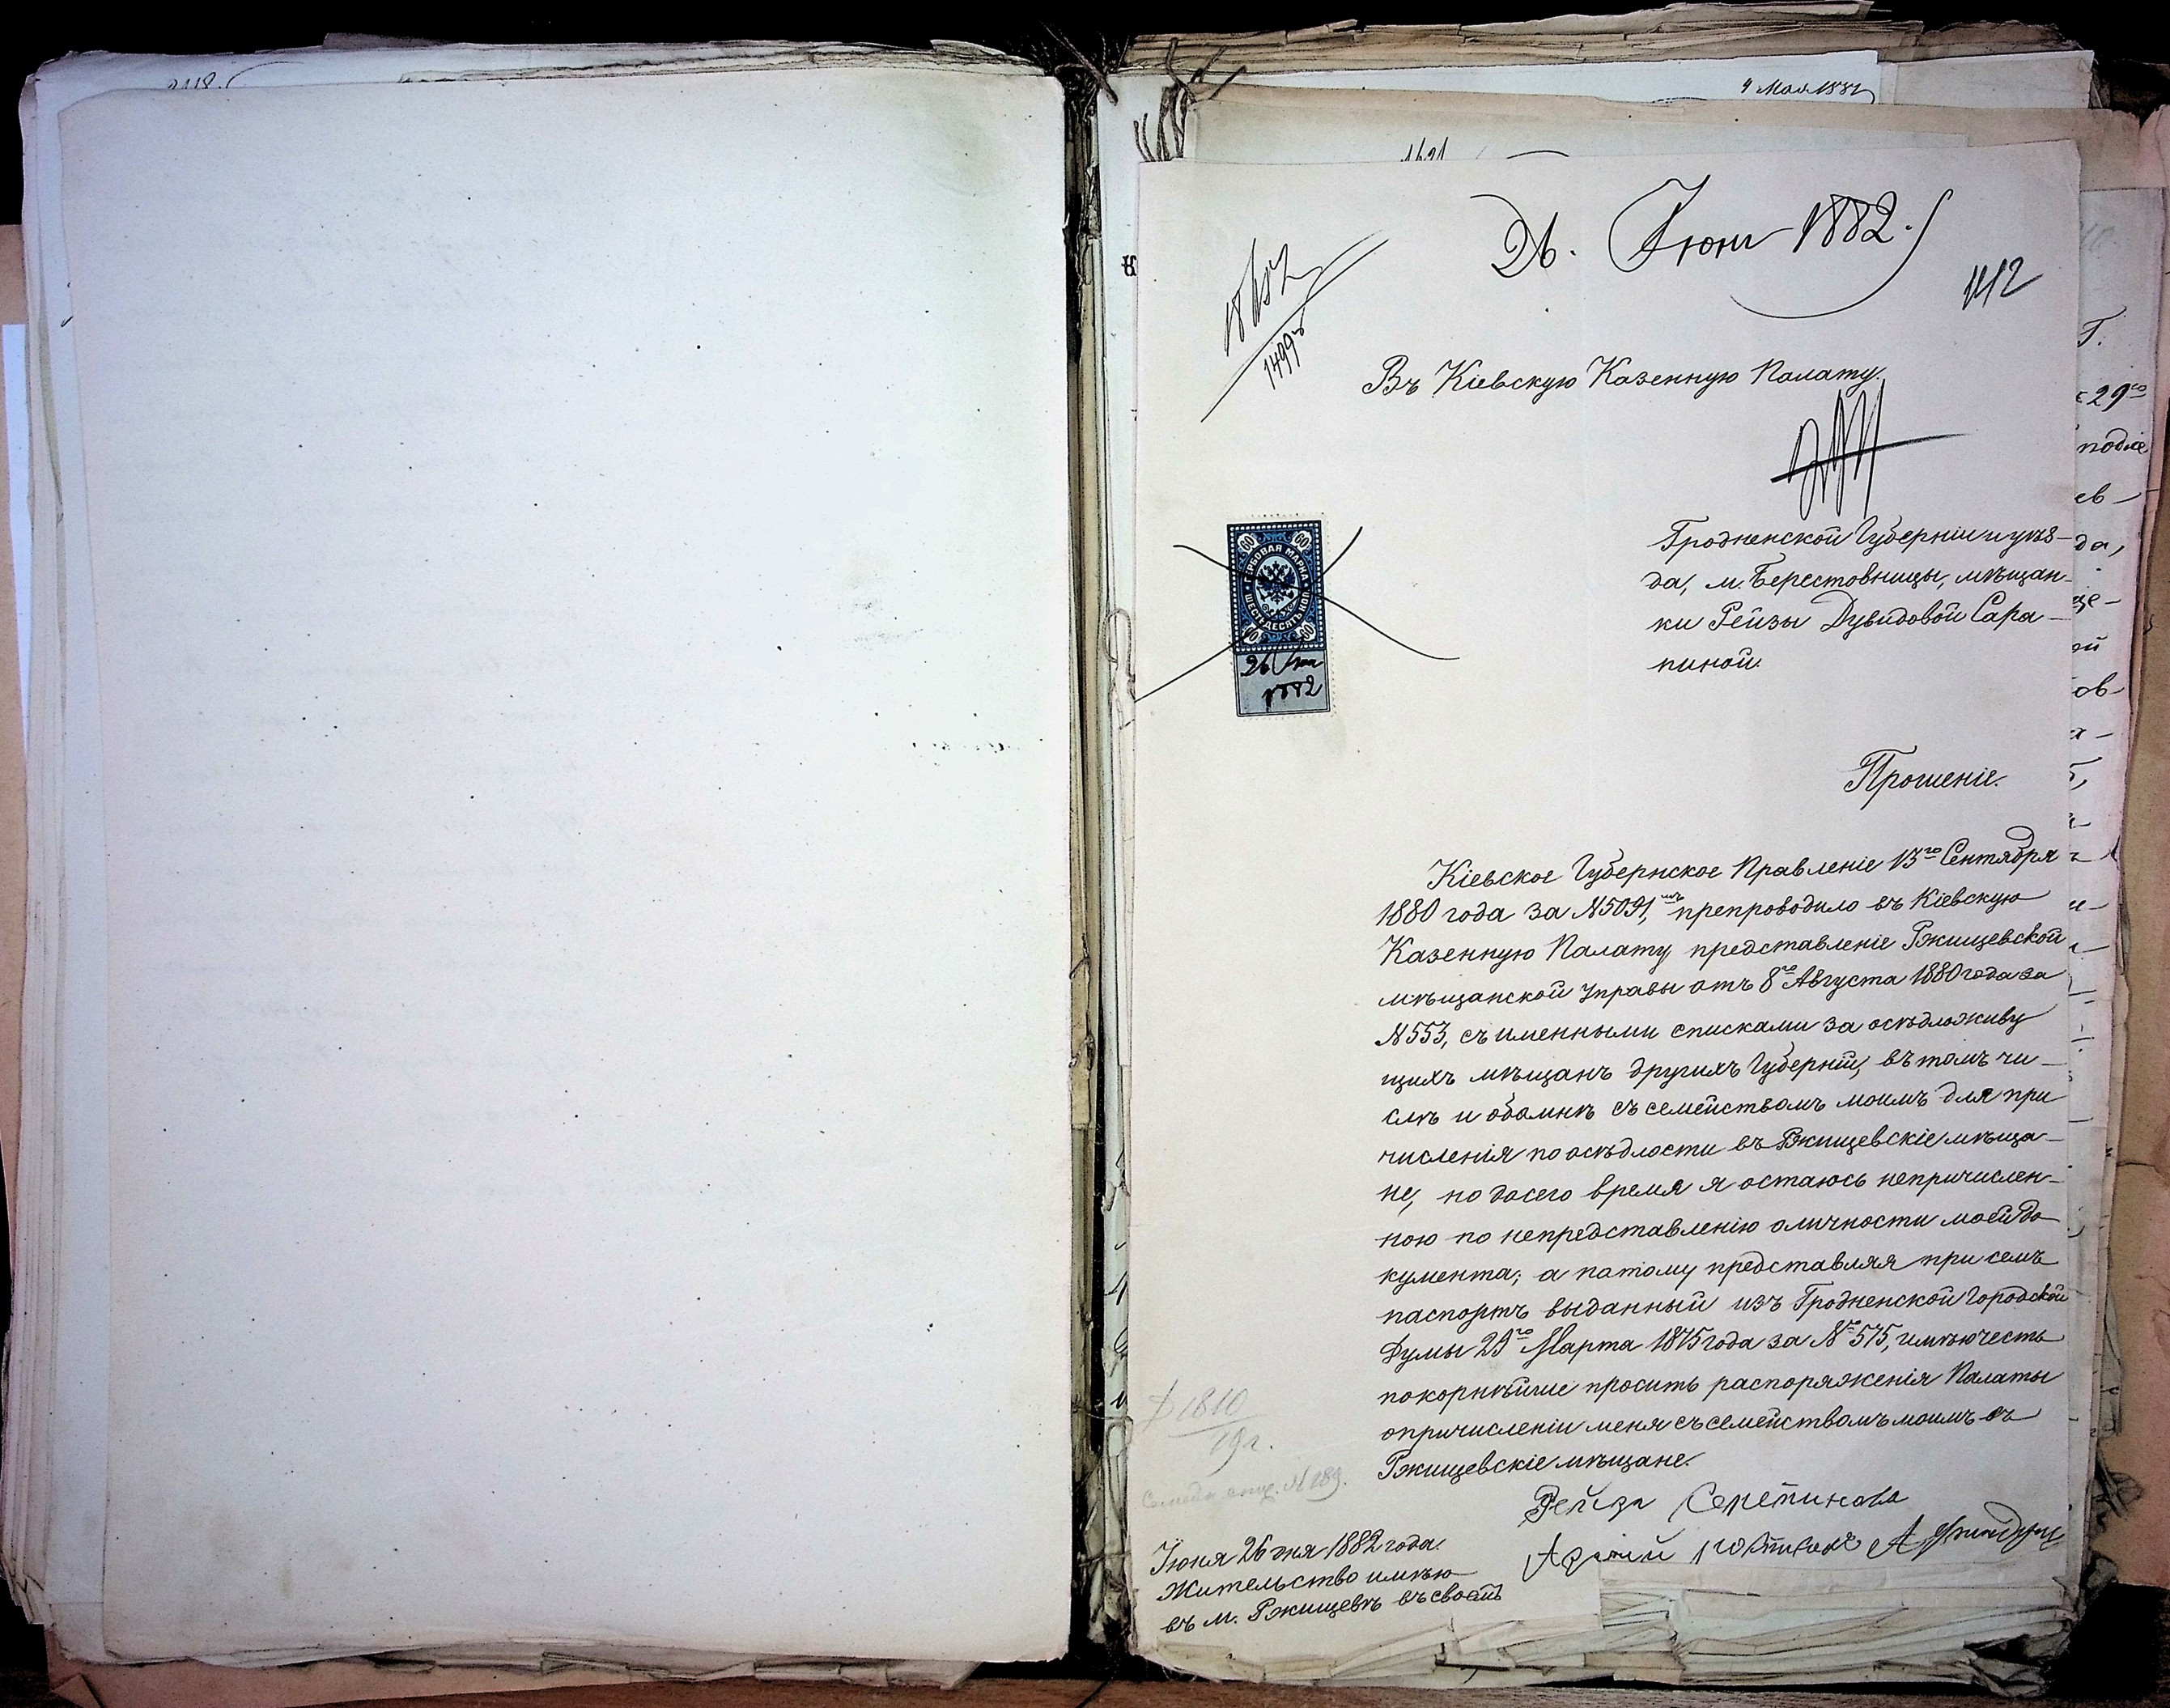 4 Мая 1882
1621
26. Іюня 1882.
1412
Въ Кіевскую Казенную Палату.
Гродненской Губерніи и уѣз-
да, м. Берестовицы, мѣщан-
ки Рейзы Дувидовой Сара-
пиной.
ГЕРБОВАЯ МАРКА
ШЕСТЬДЕСЯТЪ КОП.
60 60
60 60
26 Іюня
1882
Прошеніе.
Кіевское Губернское Правленіе 13го Сентября
1880 года за N5091, препроводило въ Кіевскую
Казенную Палату представленіе Ржищевской
мѣщанской управы отъ 8го Августа 1880 года за
N553, съ именными списками за осѣдложиву
щихъ мѣщанъ другихъ Губерній, въ томъ чи-
слѣ и обо мнѣ съ семействомъ моимъ для при
численія по осѣдлости въ Ржищевскіе мѣща-
не, но до сего время я остаюсь непричислен-
ною по непредставленію о личности моей до
кумента; а потому представляя при семъ
паспортъ выданный изъ Гродненской Городской
Думы 29го Марта 1875 года за № 575, имѣю честь
покорнѣйше просить распоряженія Палаты
о причисленіи меня съ семействомъ моимъ въ
Ржищевскіе мѣщане.
Рейза
1810
19 г.
N 189.
Іюня 26 дня 1882 года.
Жительство имѣю
въ м. Ржищевѣ въ своемъ